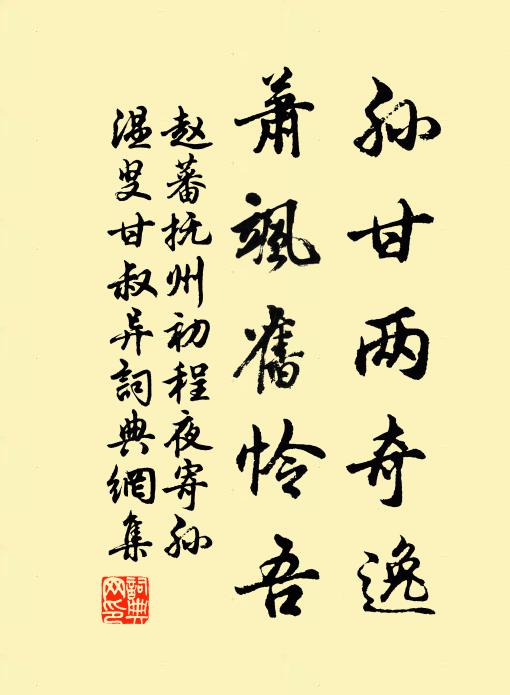 孙甘两奇逸
萧飒旧怜吾
赵蕃抚州初程夜寄孙
温叟甘叔异詞典網集
詞典网印